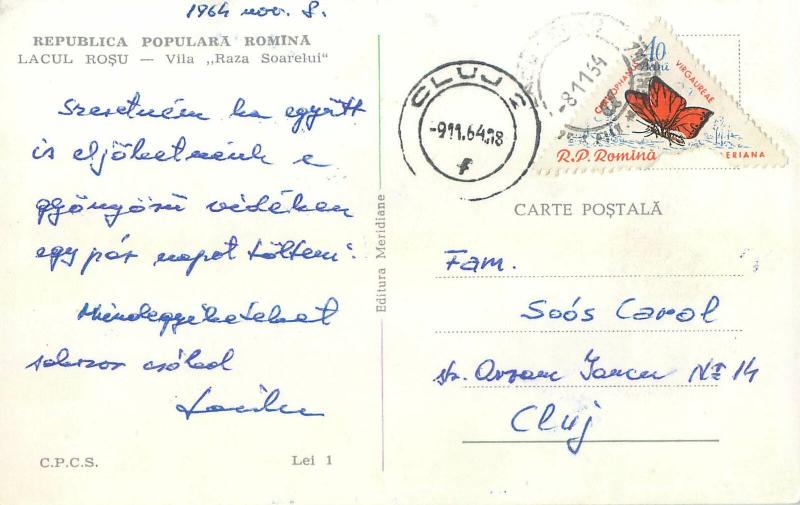 1964 nov. 8.
REPUBLICA POPULARĂ ROMÎNĂ
LACUL ROȘU — Vila „Raza Soarelui“
Szeretném ha együtt
is eljöhetnénk e
gyönyörű vidéken
egy pár napot tölteni.
Mindegyikőteket
sokszor csókol
C.P.C.S.
Lei 1
Editura Meridiane
CLUJ 2
-9.11.64.18
f
-8.11.64
40
Bani
VIRGAUREAE
R.P. Romînă
ERIANA
CARTE POȘTALĂ
Fam.
Soós Carol
str. Avram Iancu No 14
Cluj